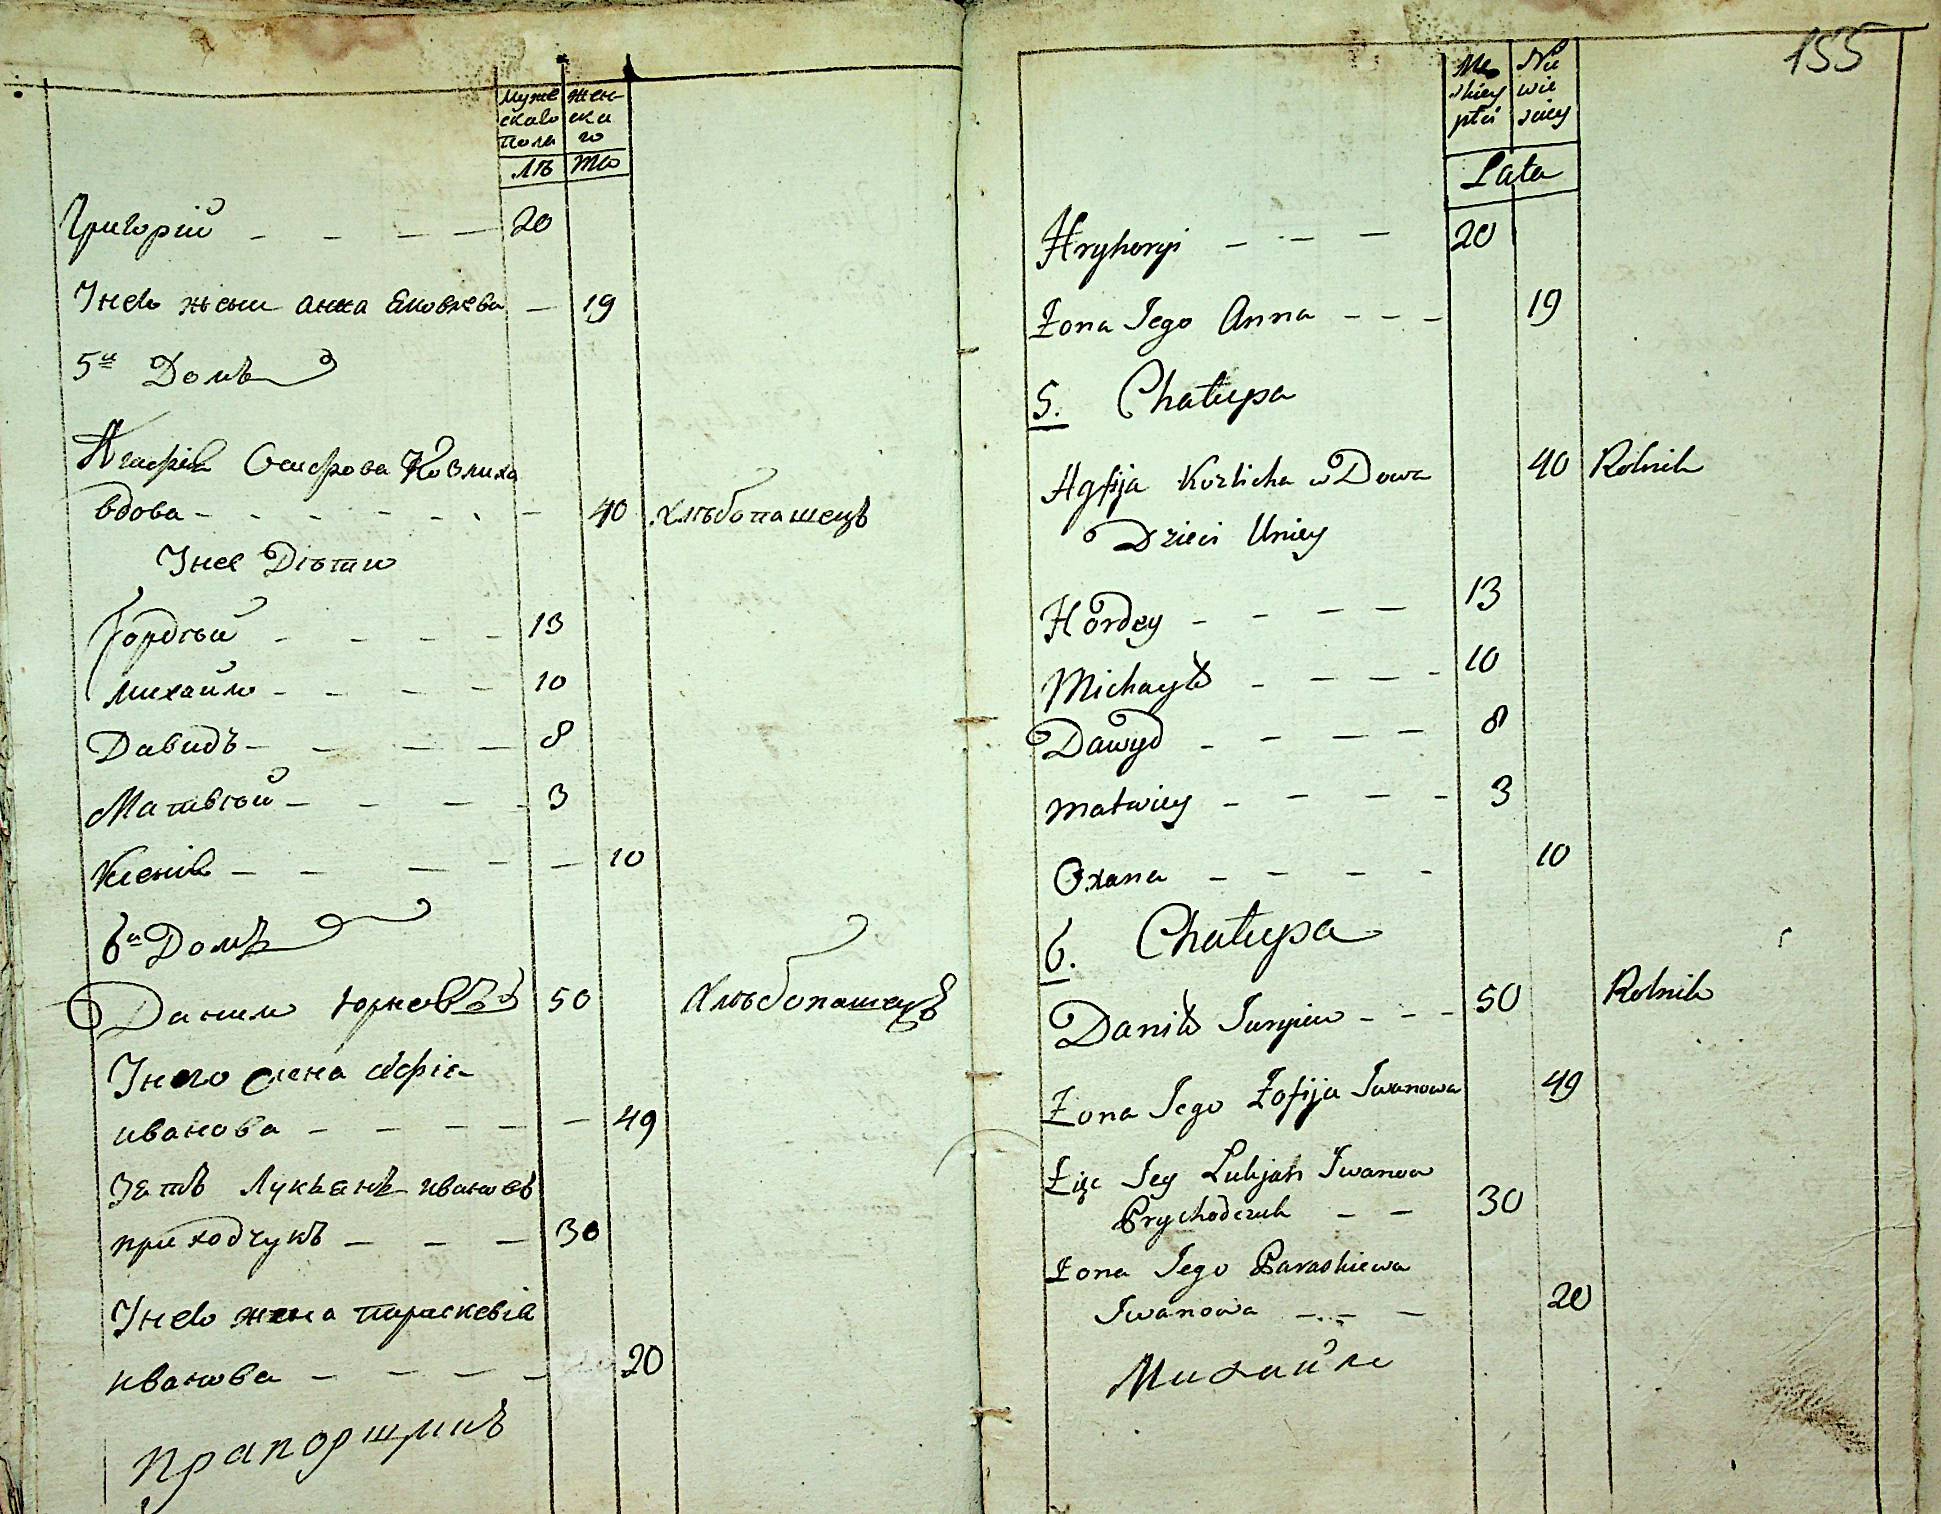 Муже
скаго
пола
Жен-
ска
го
Лѣ
та
Григорій 20
У него жена Анна Яковлева 19
5й Домъ
Агафія Осифова Козлиха
вдова 40 хлѣбопашецъ
У нее Дѣти
Гордѣй 13
Михайло 10
Давидъ 8
Матвѣй 3
Ксенія 10
6й Домъ
Данило Юрьевъ 50 Хлѣбопашецъ
У него жена Софія
иванова 49
Зять Лукьянъ ивановъ
приходчукъ 30
У него жена параскевія
иванова 20
прапорщикъ
155
Męskiey
płci
Nie
wie
sciey
Lata
Hryhoryi 20
Żona Jego Anna 19
5. Chałupa
Agfija Kozlicha wDowa 40 Rolnik
Dzieci Uniey
Hordey 13
Michayło 10
Dawyd 8
matwiey 3
Oxana 10
6. Chałupa
Daniło Juryiew 50 Rolnik
Żona Jego Zofija Iwanowa 49
Zięc Jey Lukjan Iwanow
Prychodczuk 30
Żona Jego Paraskiewa
Iwanowa 20
Михайло